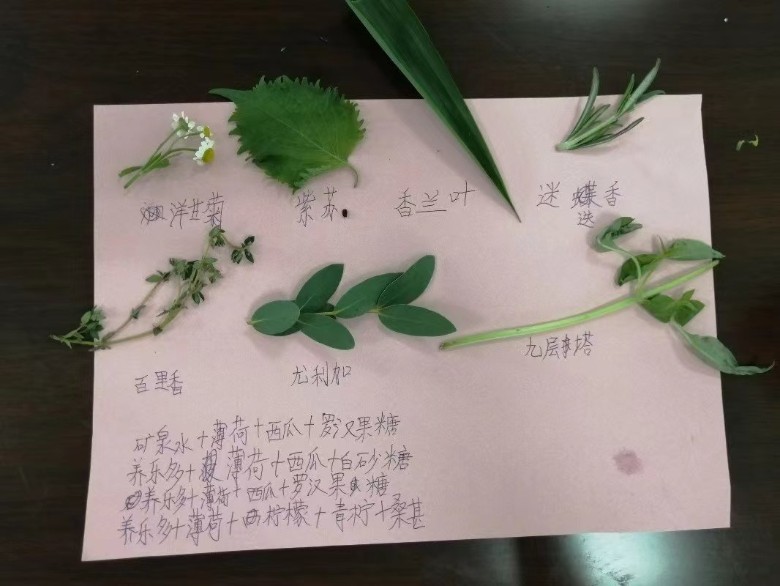 洋甘菊 紫苏 香兰叶 迷蝶香
迭
百里香 尤利加 九层塔
矿泉水+薄荷+西瓜+罗汉果糖
养乐多+薄荷+西瓜+白砂糖
养乐多+薄荷+西瓜+罗汉果糖
养乐多+薄荷+柠檬+青柠+桑甚